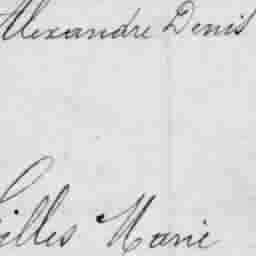 Alexandre Denis
Gilles Marie